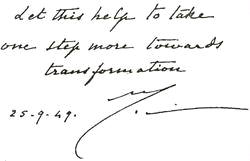 Let this help to take
one step more towards
transformation
25-9-49.